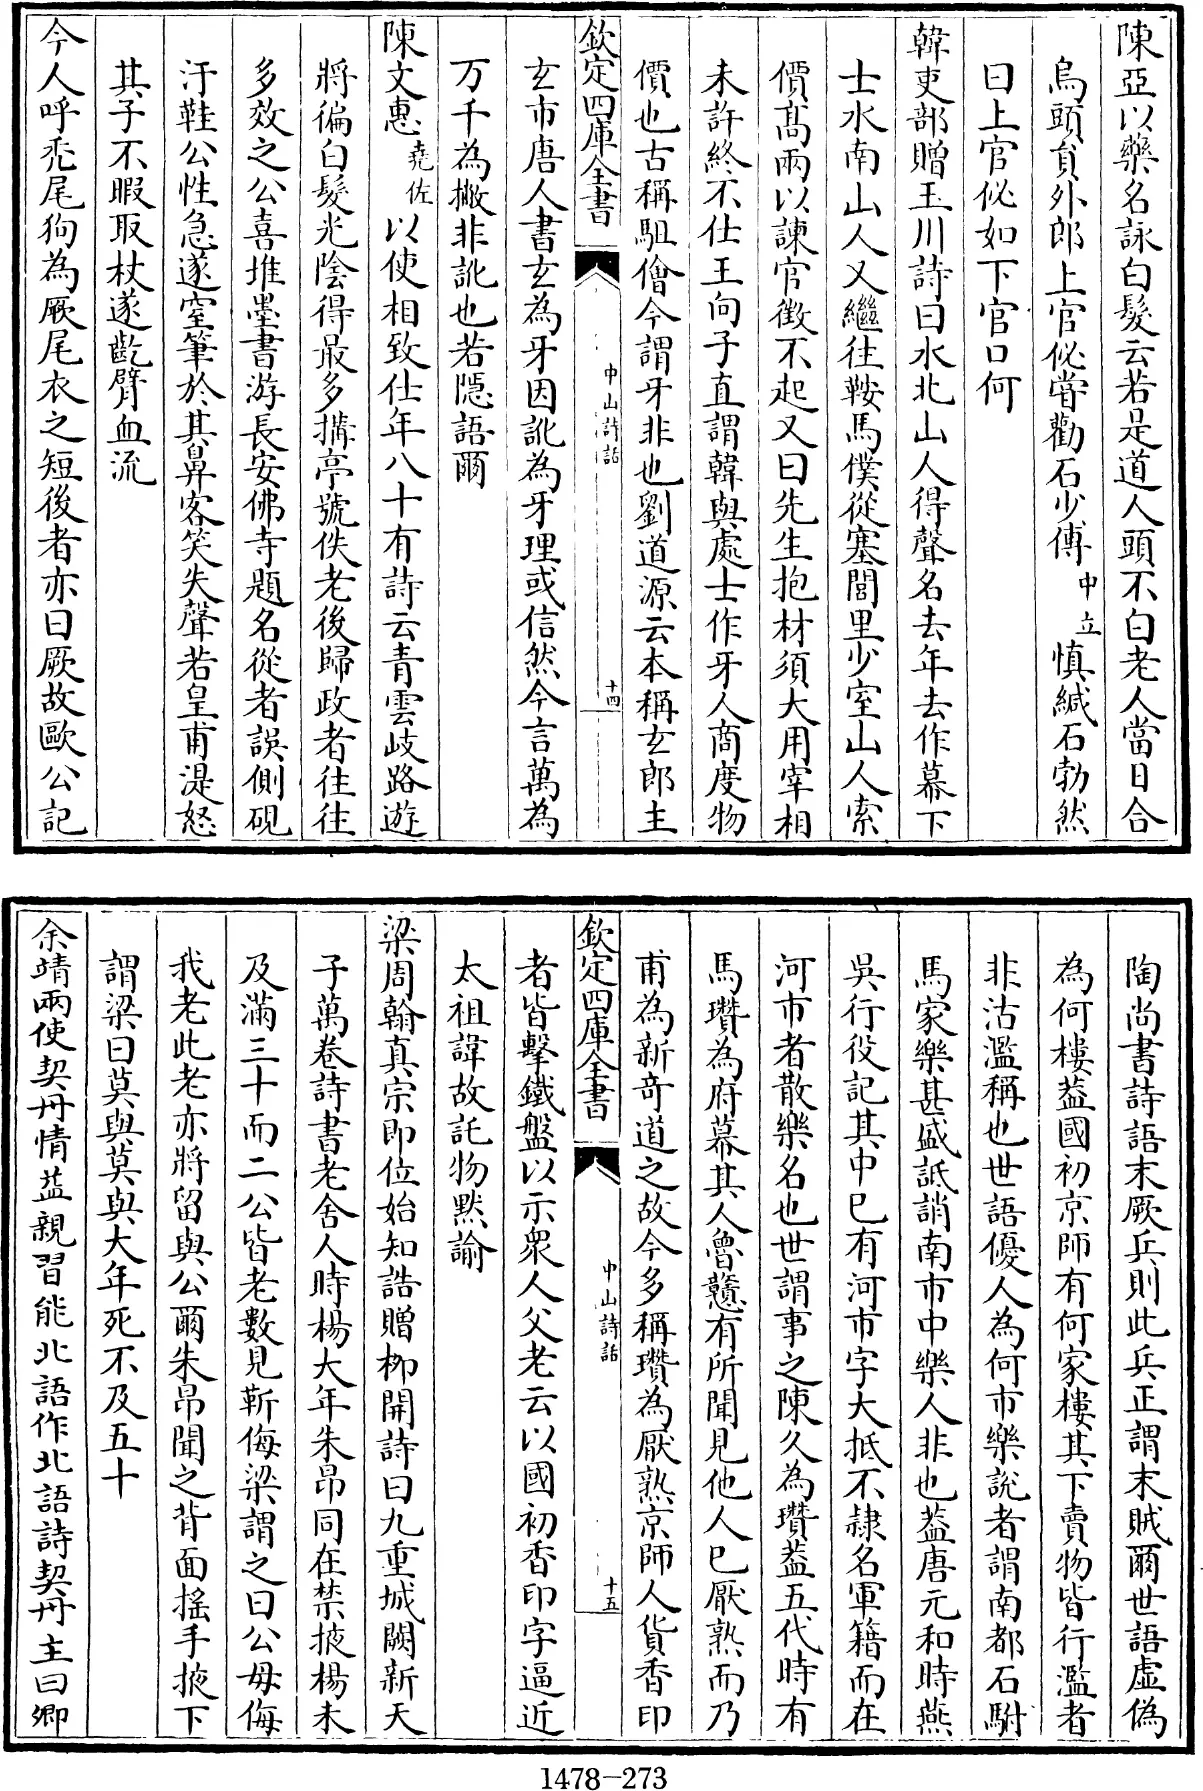 陳亞以藥名詠白髮云若是道人頭不白老人當日合
烏頭貟外郎上官佖嘗勸石少傅中立慎緘石勃然
曰上官佖如下官口何
韓吏部贈玉川詩曰水北山人得聲名去年去作幕下
士水南山人又繼往鞍馬僕從塞閭里少室山人索
價髙兩以諫官徴不起又曰先生抱材須大用宰相
未許終不仕王向子直謂韓與處士作牙人商度物
價也古稱駔儈今謂牙非也劉道源云本稱玄郎主
欽定四庫全書
中山詩話
十四
玄市唐人書玄為牙因訛為牙理或信然今言萬為
万千為撇非訛也若隠語爾
陳文惠堯佐以使相致仕年八十有詩云青雲岐路遊
將徧白髮光陰得最多搆亭號佚老後歸政者往往
多效之公喜堆墨書游長安佛寺題名從者誤側硯
汙鞋公性急遂窒筆於其鼻客笑失聲若皇甫湜怒
其子不暇取杖遂齕臂血流
今人呼禿尾狗為厥尾衣之短後者亦曰厥故歐公記
陶尚書詩語末厥兵則此兵正謂末賊爾世語虛偽
為何樓葢國初京師有何家樓其下賣物皆行濫者
非沽濫稱也世語優人為何市樂說者謂南都石駙
馬家樂甚盛詆誚南市中樂人非也葢唐元和時燕
吳行役記其中已有河市字大抵不隸名軍籍而在
河市者散樂名也世謂事之陳久為瓚葢五代時有
馬瓚為府幕其人魯戇有所聞見他人已厭熟而乃
甫為新奇道之故今多稱瓚為厭熟京師人貨香印
欽定四庫全書
中山詩話
十五
者皆擊鐵盤以示衆人父老云以國初香印字逼近
太祖諱故託物黙諭
梁周翰真宗即位始知誥贈栁開詩曰九重城闕新天
子萬卷詩書老舍人時楊大年朱昂同在禁掖楊未
及滿三十而二公皆老數見靳侮梁謂之曰公毋侮
我老此老亦將留與公爾朱昂聞之背面搖手掖下
謂梁曰莫與莫與大年死不及五十
余靖兩使契丹情益親習能北語作北語詩契丹主曰卿
1478-273